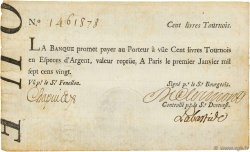 N.o 1461573 Cent livres Tournois.
LA BANQUE promet payer au Porteur à vüe Cent livres Tournois
en Especes d'Argent, valeur reçüe, A Paris le premier Janvier mil
sept cens vingt.
Vû p.r le S.r Fenellon. Signé p.r le S.r Bourgeois.
Controllé p.r le S.r Durevest.